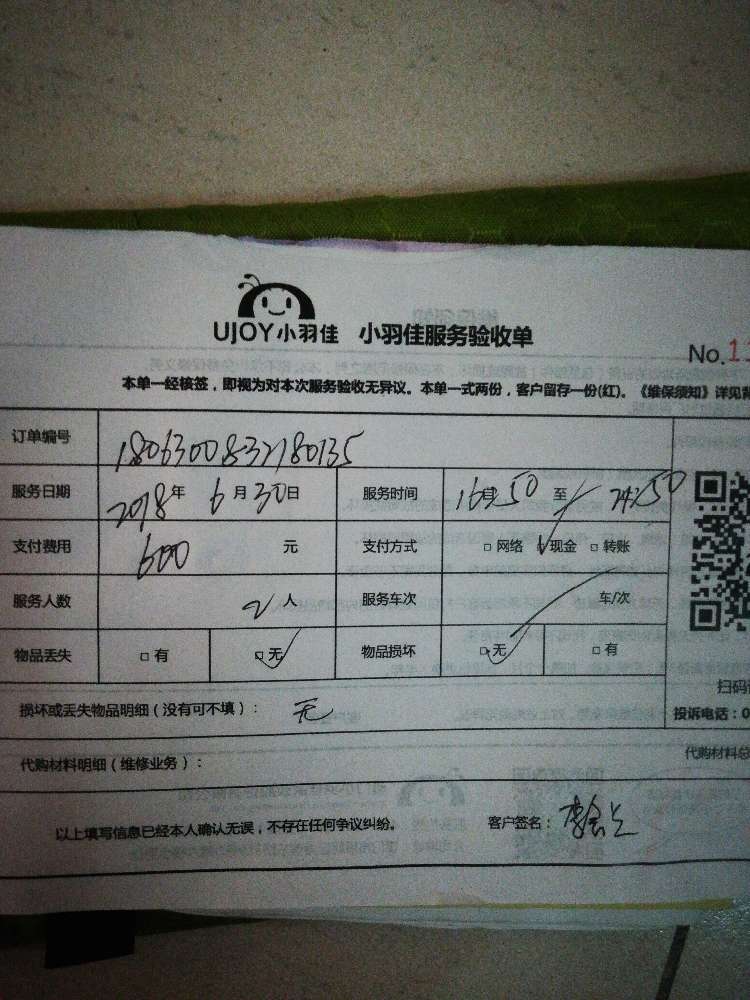 UJOY小羽佳 小羽佳服务验收单
No.1
本单一经核签，即视为对本次服务验收无异议。本单一式两份，客户留存一份(红)。《维保须知》详见背
订单编号 180630083280135
服务日期 2018年 6月30日 服务时间 16点50 至 24:50
支付费用 600 元 支付方式 □ 网络 □ 现金 □ 转账
服务人数 2 人 服务车次 车/次
物品丢失 □ 有 □ 无 物品损坏 □ 无 □ 有
扫码
损坏或丢失物品明细（没有可不填）： 无
投诉电话：0
代购材料明细（维修业务）：
代购材料总
以上填写信息已经本人确认无误，不存在任何争议纠纷。 客户签名：